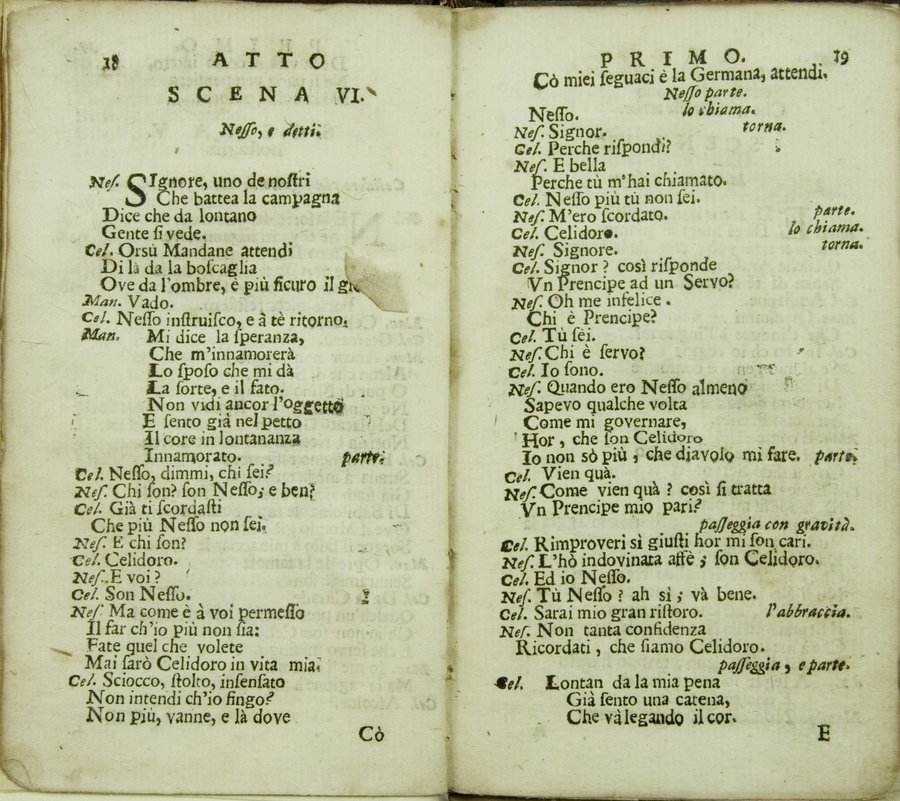 18 ATTO
SCENA VI.
Nesso, e detti.
Nes. SIgnore, uno de nostri
Che battea la campagna
Dice che da lontano
Gente si vede.
Cel. Orsù Mandane attendi
Di là da la boscaglia
Ove da l'ombre, è più sicuro il
Man. Vado.
Cel. Nesso instruisco, e à tè ritorno.
Man. Mi dice la speranza,
Che m'innamorerà
Lo sposo che mi dà
La sorte, e il fato.
Non vidi ancor l'oggetto
E sento già nel petto
Il core in lontananza
Innamorato. parte.
Cel. Nesso, dimmi, chi sei?
Nes. Chi son? son Nesso; e ben?
Cel. Già ti scordasti
Che più Nesso non sei.
Nes. E chi son?
Cel. Celidoro.
Nes. E voi?
Cel. Son Nesso.
Nes. Ma come è à voi permesso
Il far ch'io più non sia:
Fate quel che volete
Mai sarò Celidoro in vita mia.
Cel. Sciocco, stolto, insensato
Non intendi ch'io fingo?
Non più, vanne, e là dove
Cò
PRIMO. 19
Cò miei seguaci è la Germana, attendi.
Nesso parte.
Nesso. lo chiama.
Nes. Signor. torna.
Cel. Perche rispondi?
Nes. E bella
Perche tù m'hai chiamato.
Cel. Nesso più tù non sei.
Nes. M'ero scordato. parte.
Cel. Celidoro. lo chiama.
Nes. Signore. torna.
Cel. Signor? così risponde
Vn Prencipe ad un Servo?
Nes. Oh me infelice.
Chi è Prencipe?
Cel. Tù sei.
Nes. Chi è servo?
Cel. Io sono.
Nes. Quando ero Nesso almeno
Sapevo qualche volta
Come mi governare,
Hor, che son Celidoro
Io non sò più, che diavolo mi fare. parte.
Cel. Vien quà.
Nes. Come vien quà? così si tratta
Vn Prencipe mio pari?
passeggia con gravità.
Cel. Rimproveri sì giusti hor mi son cari.
Nes. L'hò indovinata affè; son Celidoro.
Cel. Ed io Nesso.
Nes. Tù Nesso? ah si; và bene.
Cel. Sarai mio gran ristoro. l'abbraccia.
Nes. Non tanta confidenza
Ricordati, che siamo Celidoro.
passeggia, e parte.
Cel. Lontan da la mia pena
Già sento una catena,
Che và legando il cor.
E